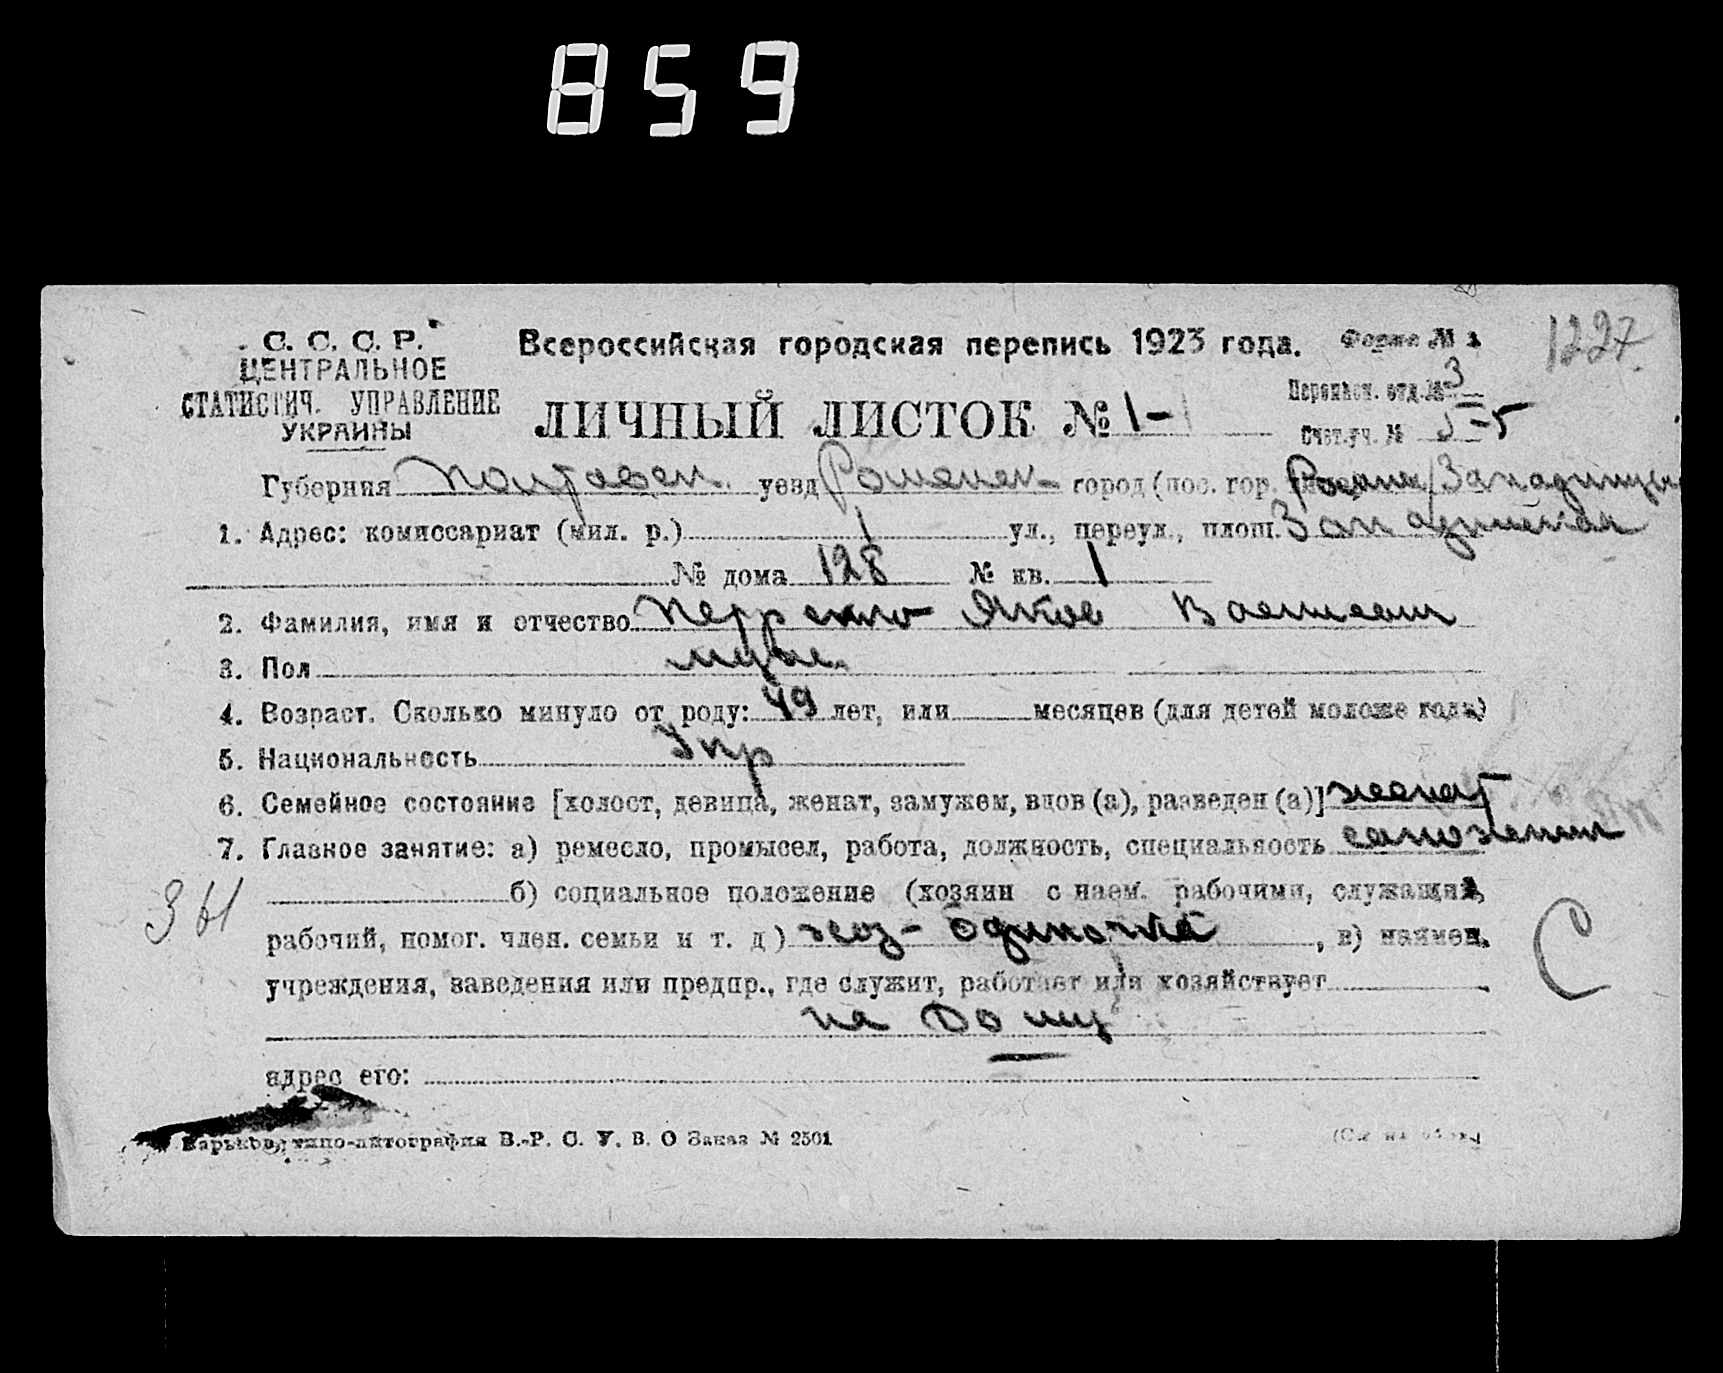 859
С. С. С. Р.
ЦЕНТРАЛЬНОЕ
СТАТИСТИЧ. УПРАВЛЕНИЕ
УКРАИНЫ
Всероссийская городская перепись 1923 года.
Форма № 1
1227
ЛИЧНЫЙ ЛИСТОК № 1-
Переписн. отд. № 3
Счет. уч. № 5-5
Губерния Полтавск. уезд Роменск город (пос. гор. Ромны
1. Адрес: комиссариат (мил. р.) 1 ул., переул., площ.
№ дома 128 № кв. 1
2. Фамилия, имя и отчество Яков
3. Пол муж.
4. Возраст. Сколько минуло от роду: 49 лет, или месяцев (для детей моложе года)
5. Национальность Укр
6. Семейное состояние [холост, девица, женат, замужем, вдов (а), разведен (а)] женат
7. Главное занятие: а) ремесло, промысел, работа, должность, специальность сапожник
б) социальное положение (хозяин с наем. рабочими, служащий,
3 Ы
рабочий, помог. член. семьи и т. д) хоз- одиночка, в) наимен.
С
учреждения, заведения или предпр., где служит, работает или хозяйствует
на дому
адрес его:
Харьков, типо-литография В.-Р. С. У. В. О Заказ № 2501